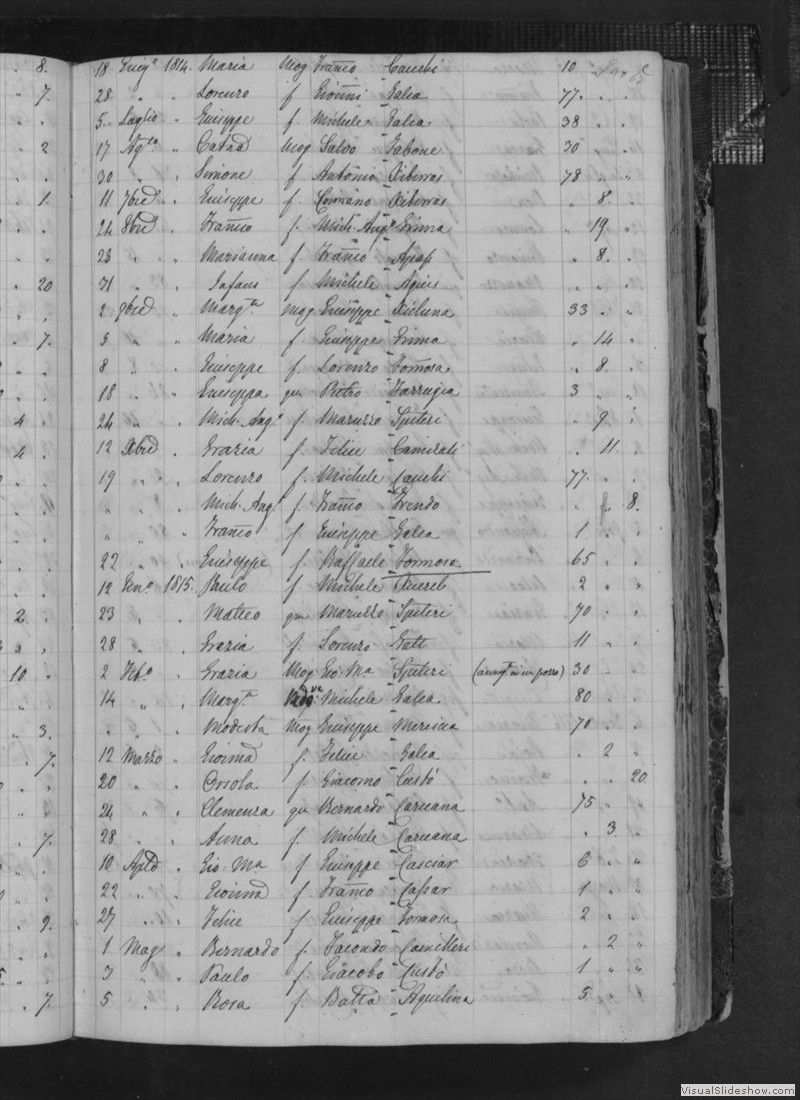 8. 18 Giugo 1814. Maria Mog Franco Cauchi 10 " "
7. 28 " " Lorenzo f Gionni Galea 77 " "
5 Luglio " Giuseppe f. Michele Galea 38 " "
2 17 Agto " Catnd Mog Salvo Gabone 30 " "
30 " " Simone f Antonio Xiberras 78 " "
1. 11 7bre " Giuseppe f. Xiberras " 8. "
24 8bre " Franco f. Mich. Ango Grima " 19 "
23 " " Marianna f. Franco Apap " 8. "
20 31 " " Infans f Michele Agius " " "
2 9bre " Margta Mog Giuseppe Xicluna 33 " "
7. 5 " " Maria f. Giuseppe Grima " 14 "
8 " " Giuseppe f Lorenzo Formosa " 8. "
18 " " Giuseppa qm Pietro Farrugia 3 " "
4 24 " " Mich. Ango f Maruzzo Spiteri " 9 "
4 12 Xbre " Grazia f. Felice Camilleri " 11. "
19 " " Lorenzo f. Michele Cauchi 77. " "
" " " Mich. Ango f. Franco Grendo " " 8.
" " " Franco f Giuseppe Galea 1 " "
22 " " Giuseppe f Raffaele Formosa 65 " "
12 Geno 1815. Paulo f Michele Xuereb 2 " "
2. 23 " " Matteo qm Maruzzo Spiteri 70 " "
28 " " Grazia f. Lorenzo Gatt 11 " "
10 2 Febo " Grazia Mog Gio. Ma Spiteri 30
14 " " Margta Michele Galea 80 " "
3. " " " Modesta Mog Giuseppe Mersieca 70 " "
7. 12 Marzo " Gionnd f. Felice Galea " 2 "
20 " " Orsola f. Giacomo Custò " " 20
24 " " Clemenza qm Bernardo Caruana 75 " "
7. 28 " " Anna f. Michele Caruana " 3. "
10 Aple " Gio. Ma f Giuseppe Casciar 6 " "
22 " " Gionnd f Franco Cassar 1 " "
9. 27 " " Felice f Giuseppe Formosa 2 " "
1 Mago " Bernardo f. Facondo Camilleri " 2 "
3 " " Paulo f Giacobo Custò 1 " "
7. 5 " " Rosa f. Batta Aquilina 5 " "
VisualSlideshow.com